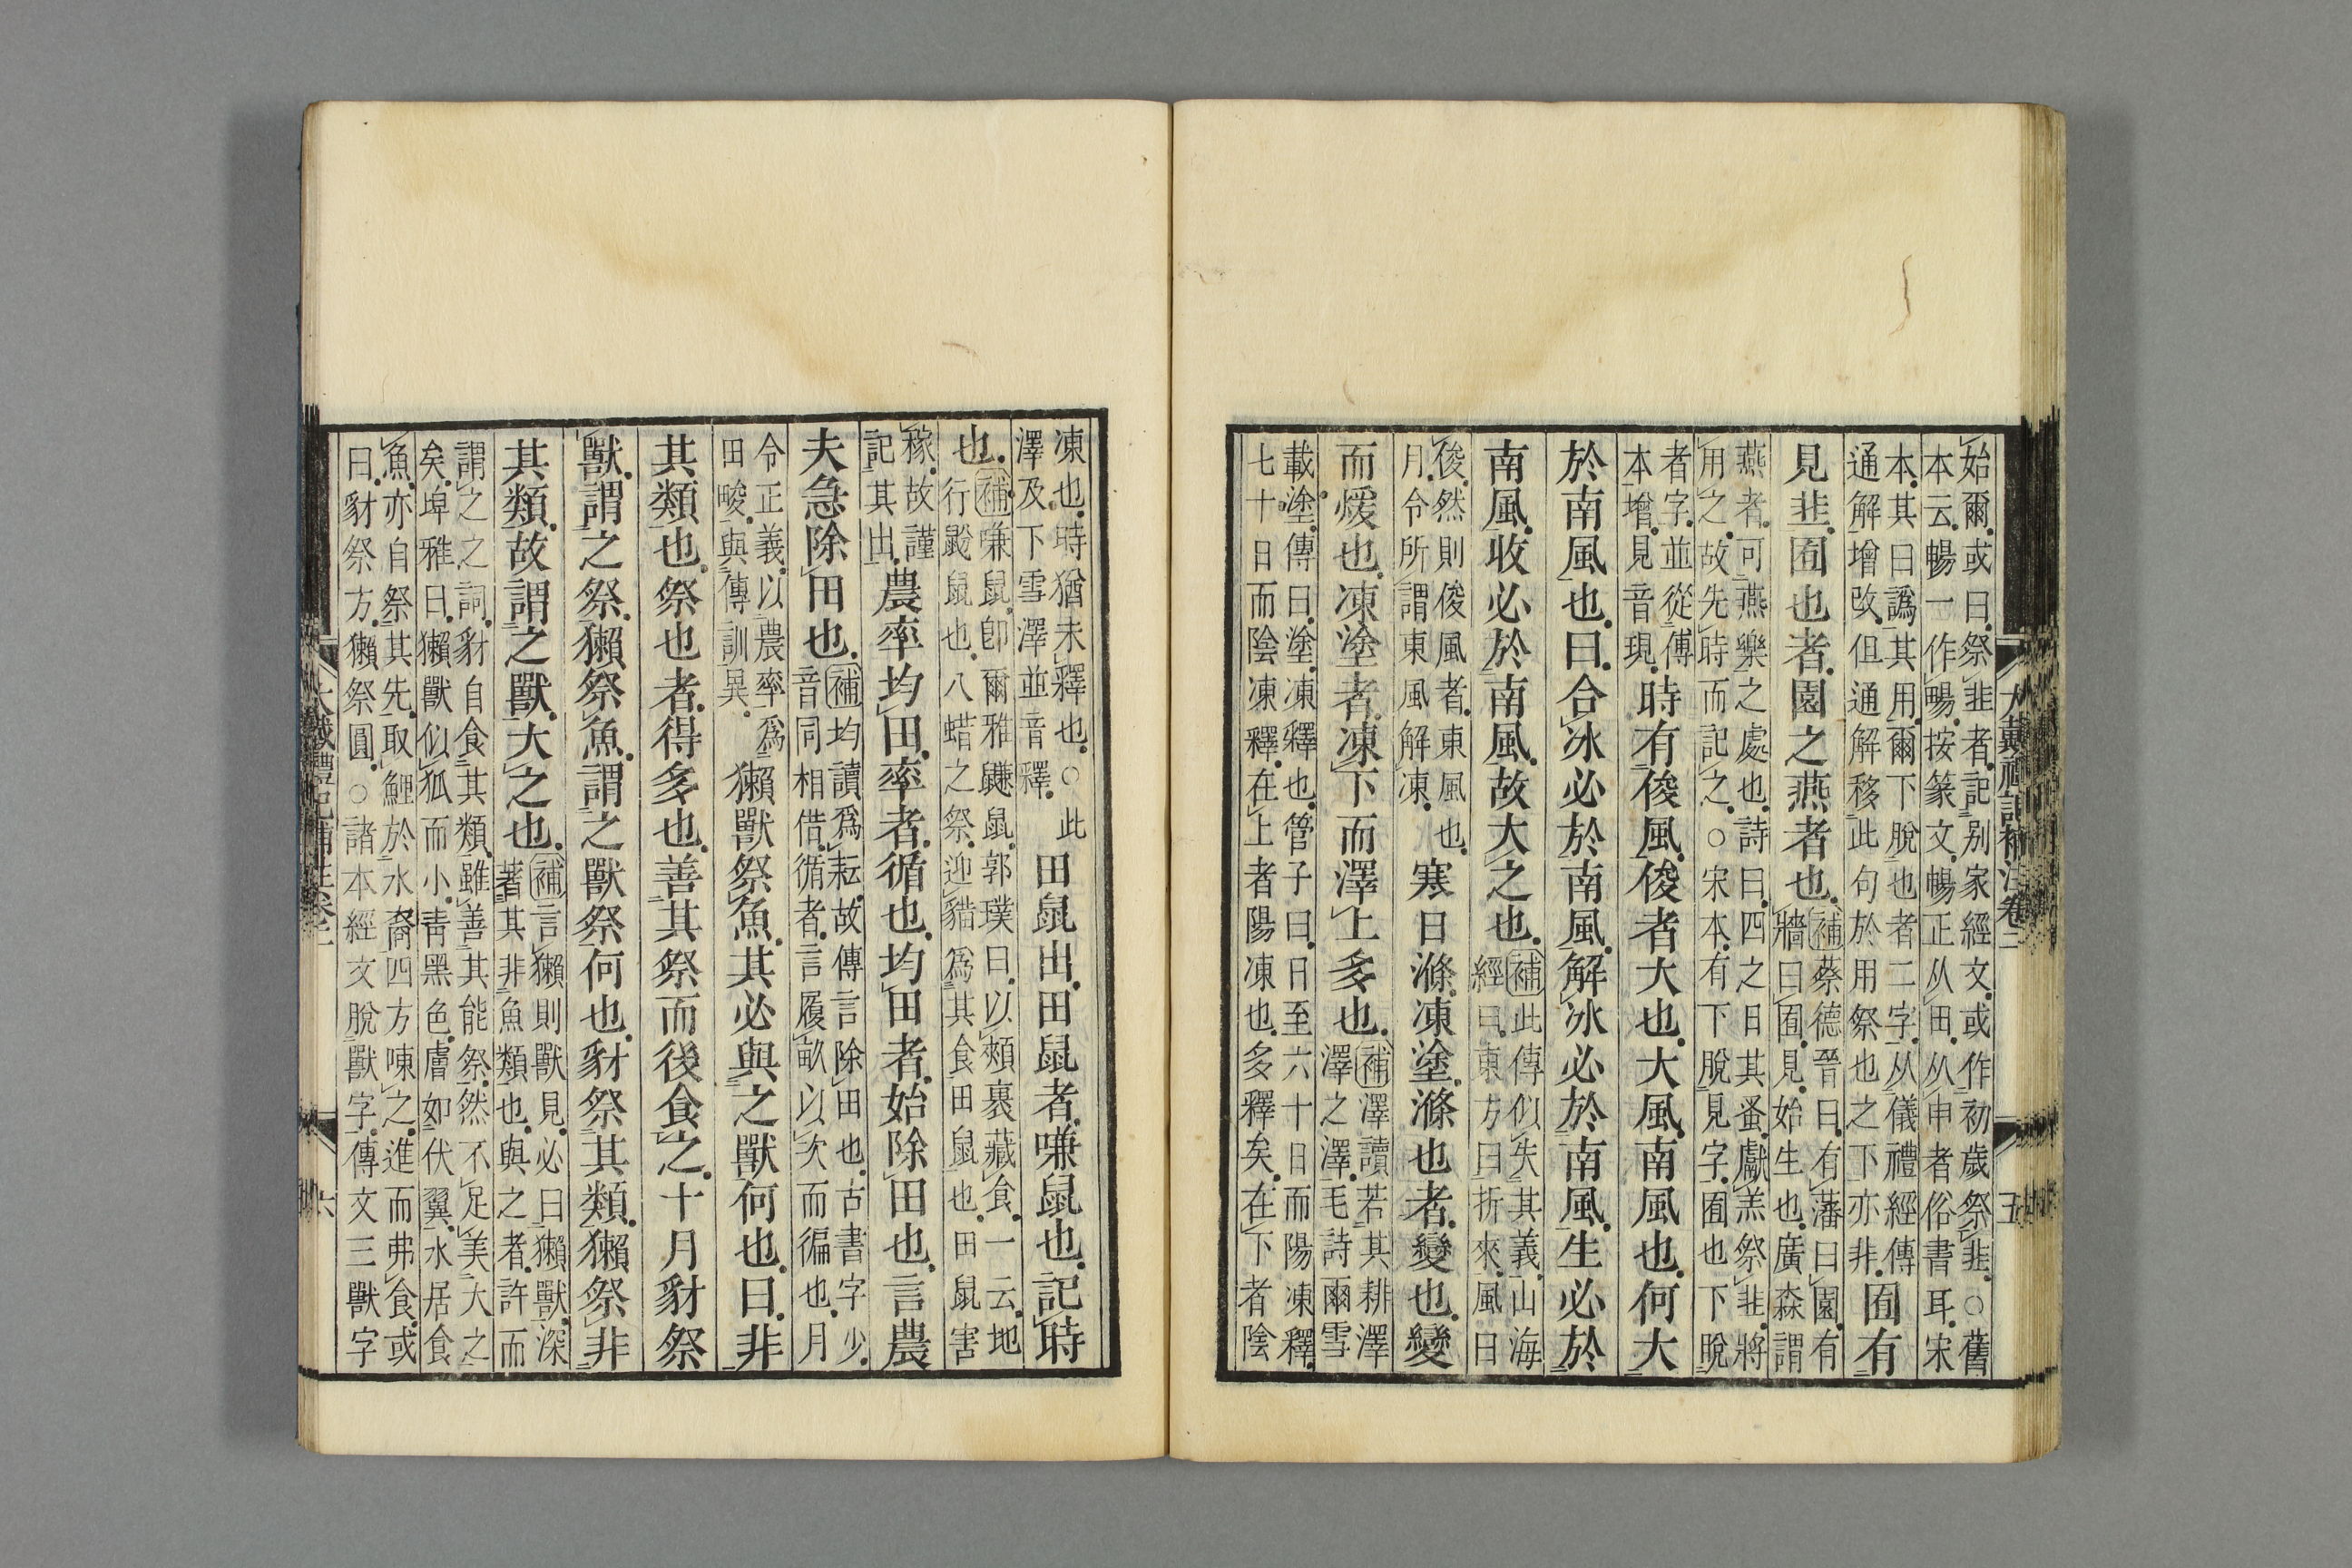 始爾或曰祭韭者記别家經文或作初歲祭韭○舊
本云暢一作畼按篆文暢畼正从田从申者俗書耳宋
本其曰譌其用爾下脫也者二字从儀禮經傳
通解增改但通解移此句於用祭也之下亦非囿有
見韭囿也者園之燕者也補蔡德晉曰有藩曰園有
牆曰囿見始生也廣森謂
燕者可燕樂之處也詩曰四之日其蚤獻羔祭韭將
用之故先時而記之○宋本有下脫見字囿也下脫
者字並從傅
本增見音現時有俊風俊者大也大風南風也何大
於南風也曰合冰必於南風解冰必於南風生必於
南風收必於南風故大之也補此傳似失其義山海
經曰東方曰折來風曰
俊然則俊風者東風也
月令所謂東風解凍寒日滌凍塗滌也者變也變
而煖也凍塗者凍下而澤上多也補澤讀若其耕澤
澤之澤毛詩爾雪
載塗傳曰塗凍釋也管子曰日至六十日而陽凍釋
七十日而陰凍釋在上者陽凍也多釋矣在下者陰
大戴禮記補注卷二
五
凍也時猶未釋也○此
澤及下雪澤並音釋田鼠出田鼠者嗛鼠也記時
也補嗛鼠卽爾雅鼸鼠郭璞曰以頰裏藏食一云地
行鼢鼠也八蜡之祭迎貓爲其食田鼠也田鼠害
稼故謹
記其出農率均田率者循也均田者始除田也言農
夫急除田也補均讀爲耘故傳言除田也古書字少
音同相借循者言履畝以次而徧也月
令正義以農率爲
田畯與傳訓異獺獸祭魚其必與之獸何也曰非
其類也祭也者得多也善其祭而後食之十月豺祭
獸謂之祭獺祭魚謂之獸祭何也豺祭其類獺祭非
其類故謂之獸大之也補言獺則獸見必曰獺獸深
著其非魚類也與之者許而
謂之之詞豺自食其類雖善其能祭然不足美大之
矣埤雅曰獺獸似狐而小靑黑色膚如伏翼水居食
魚亦自祭其先取鯉於水裔四方陳之進而弗食或
曰豺祭方獺祭圓○諸本經文脫獸字傳文三獸字
大戴禮記補注卷二
六